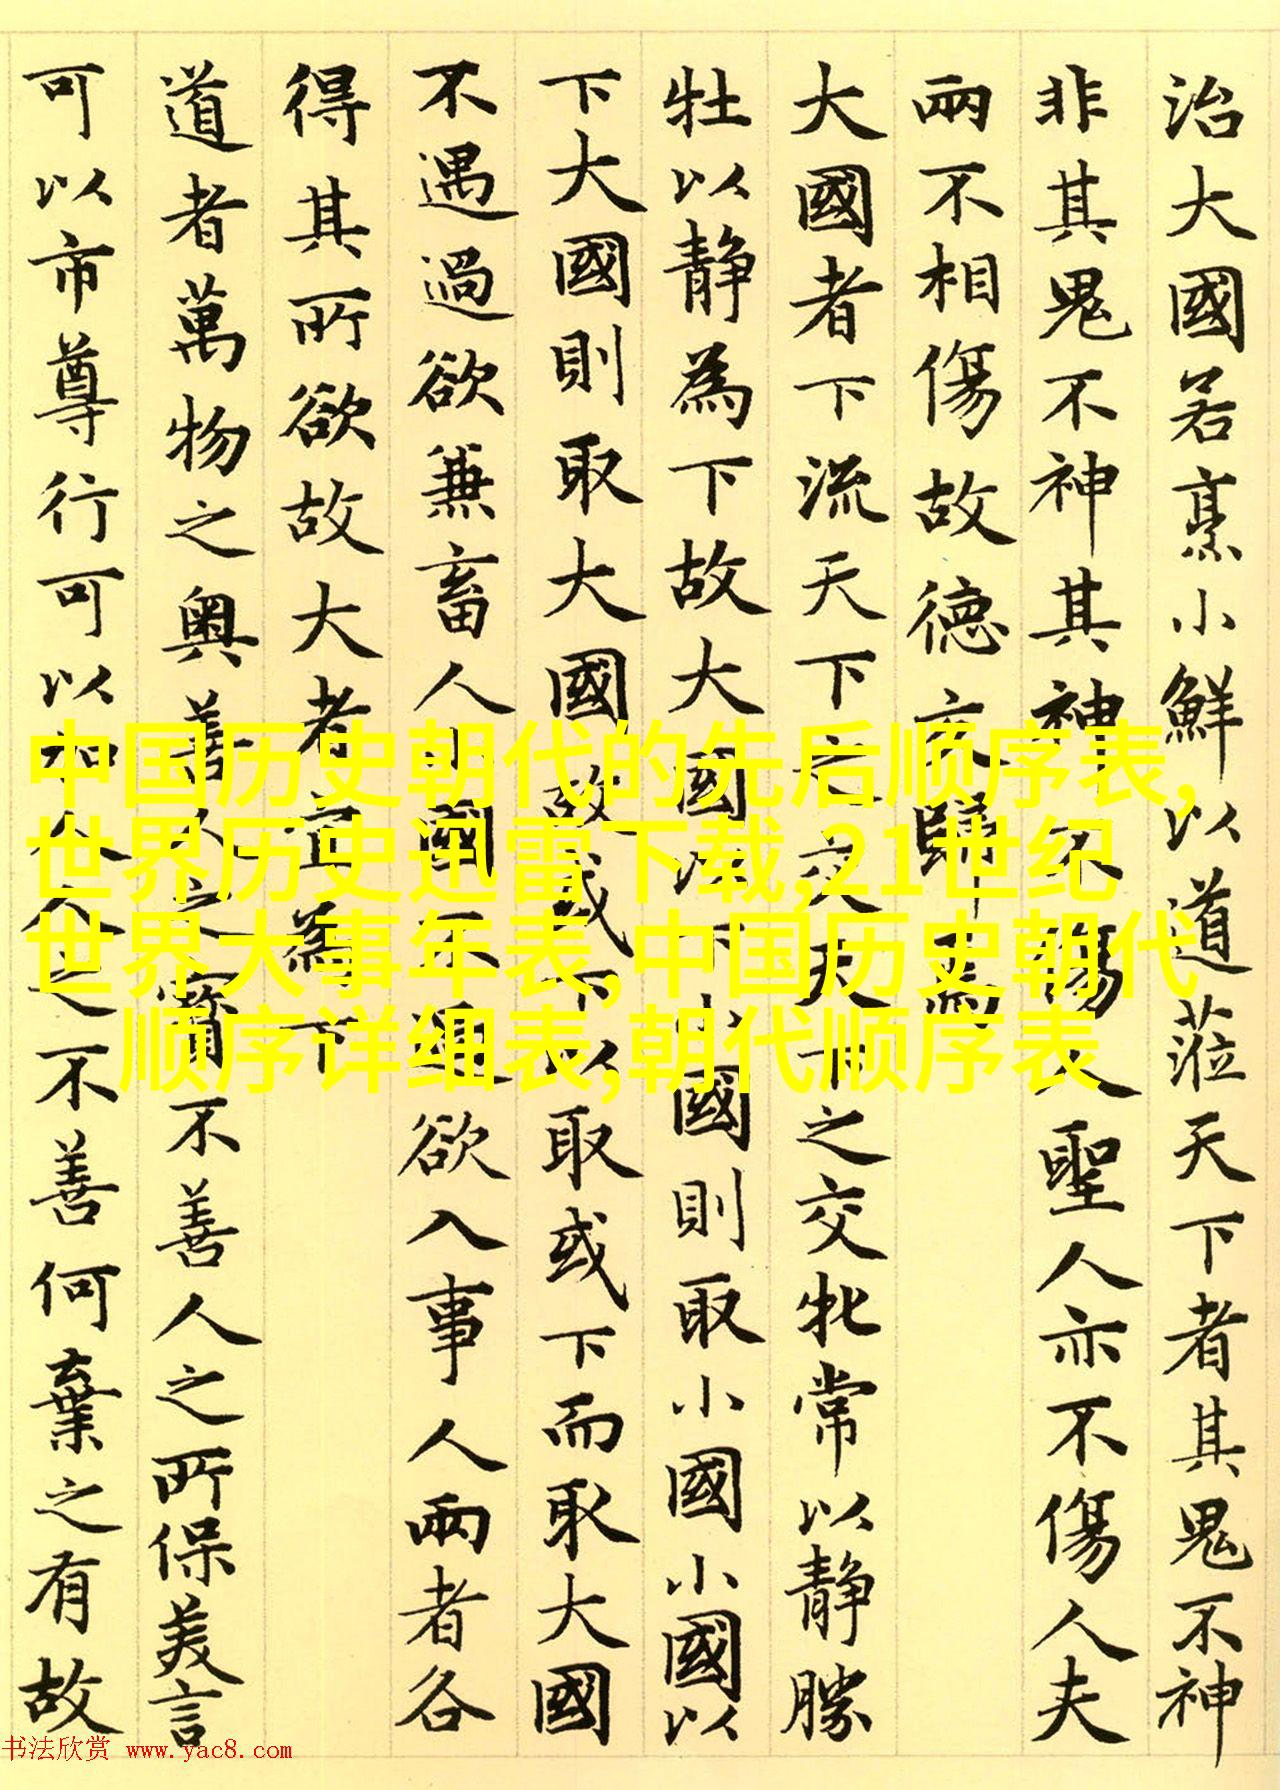 治大國若烹小鮮以道蒞天下者其鬼不神
非其鬼不神其神不傷人聖人亦不傷人夫
兩不相傷故德交歸焉
大國者下流天下之交天下之交牝常以静勝
牡以静為下故大國以下小國則取小國小國以
下大國則取大國故或下以取或下而取大國
不遇過欲兼畜人小國不過欲入事人兩者各
得其所欲故大者宜為下
道者萬物之奧善人之寶不善人之所保美言
可以市尊行可以加人人之不善何棄之有故
中国历史朝代的先后顺序表,
世界历史迅雷下载,21世纪
世界大事年表,中国历史朝代
顺序详细表,朝代顺序表
书法欣赏 www.yac8.com